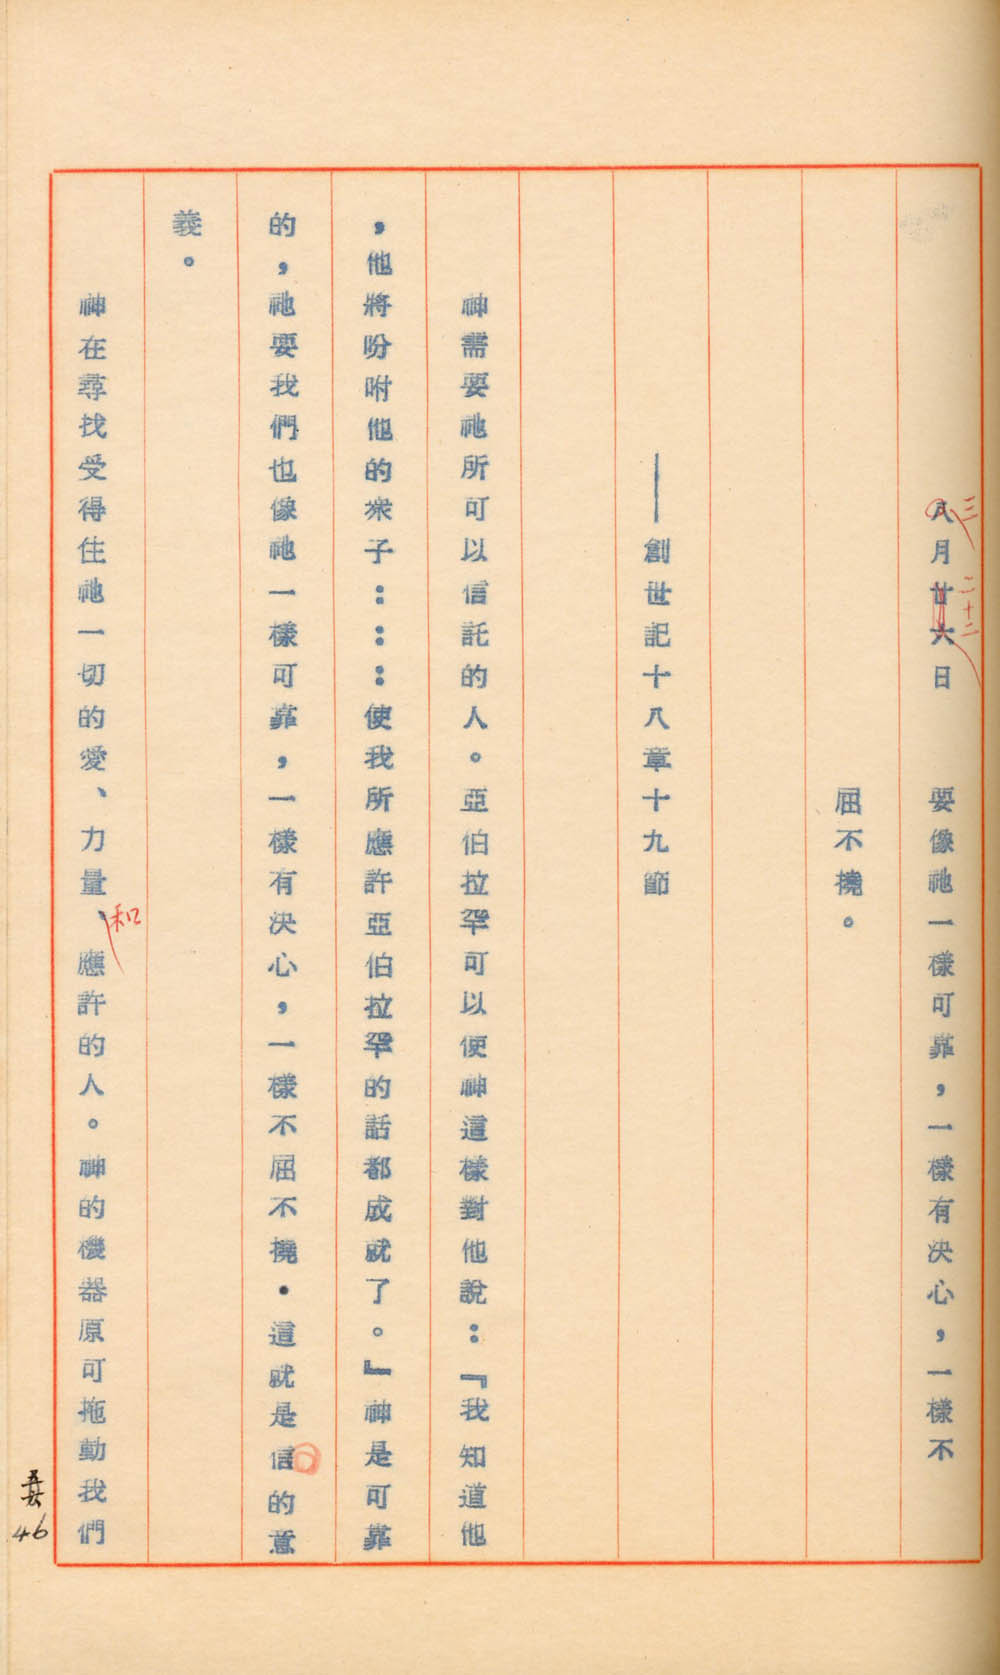 八月廿六日　　要像祂一樣可靠，一樣有決心，一樣不
三
二十二
屈不撓。
——創世記十八章十九節
神需要祂所可以信託的人。亞伯拉罕可以使神這樣對他說：『我知道他
，他將吩咐他的衆子：：：使我所應許亞伯拉罕的話都成就了。』神是可靠
的，祂要我們也像祂一樣可靠，一樣有決心，一樣不屈不撓．這就是信的意
義。
神在尋找受得住祂一切的愛、力量、應許的人。神的機器原可拖動我們
和
46